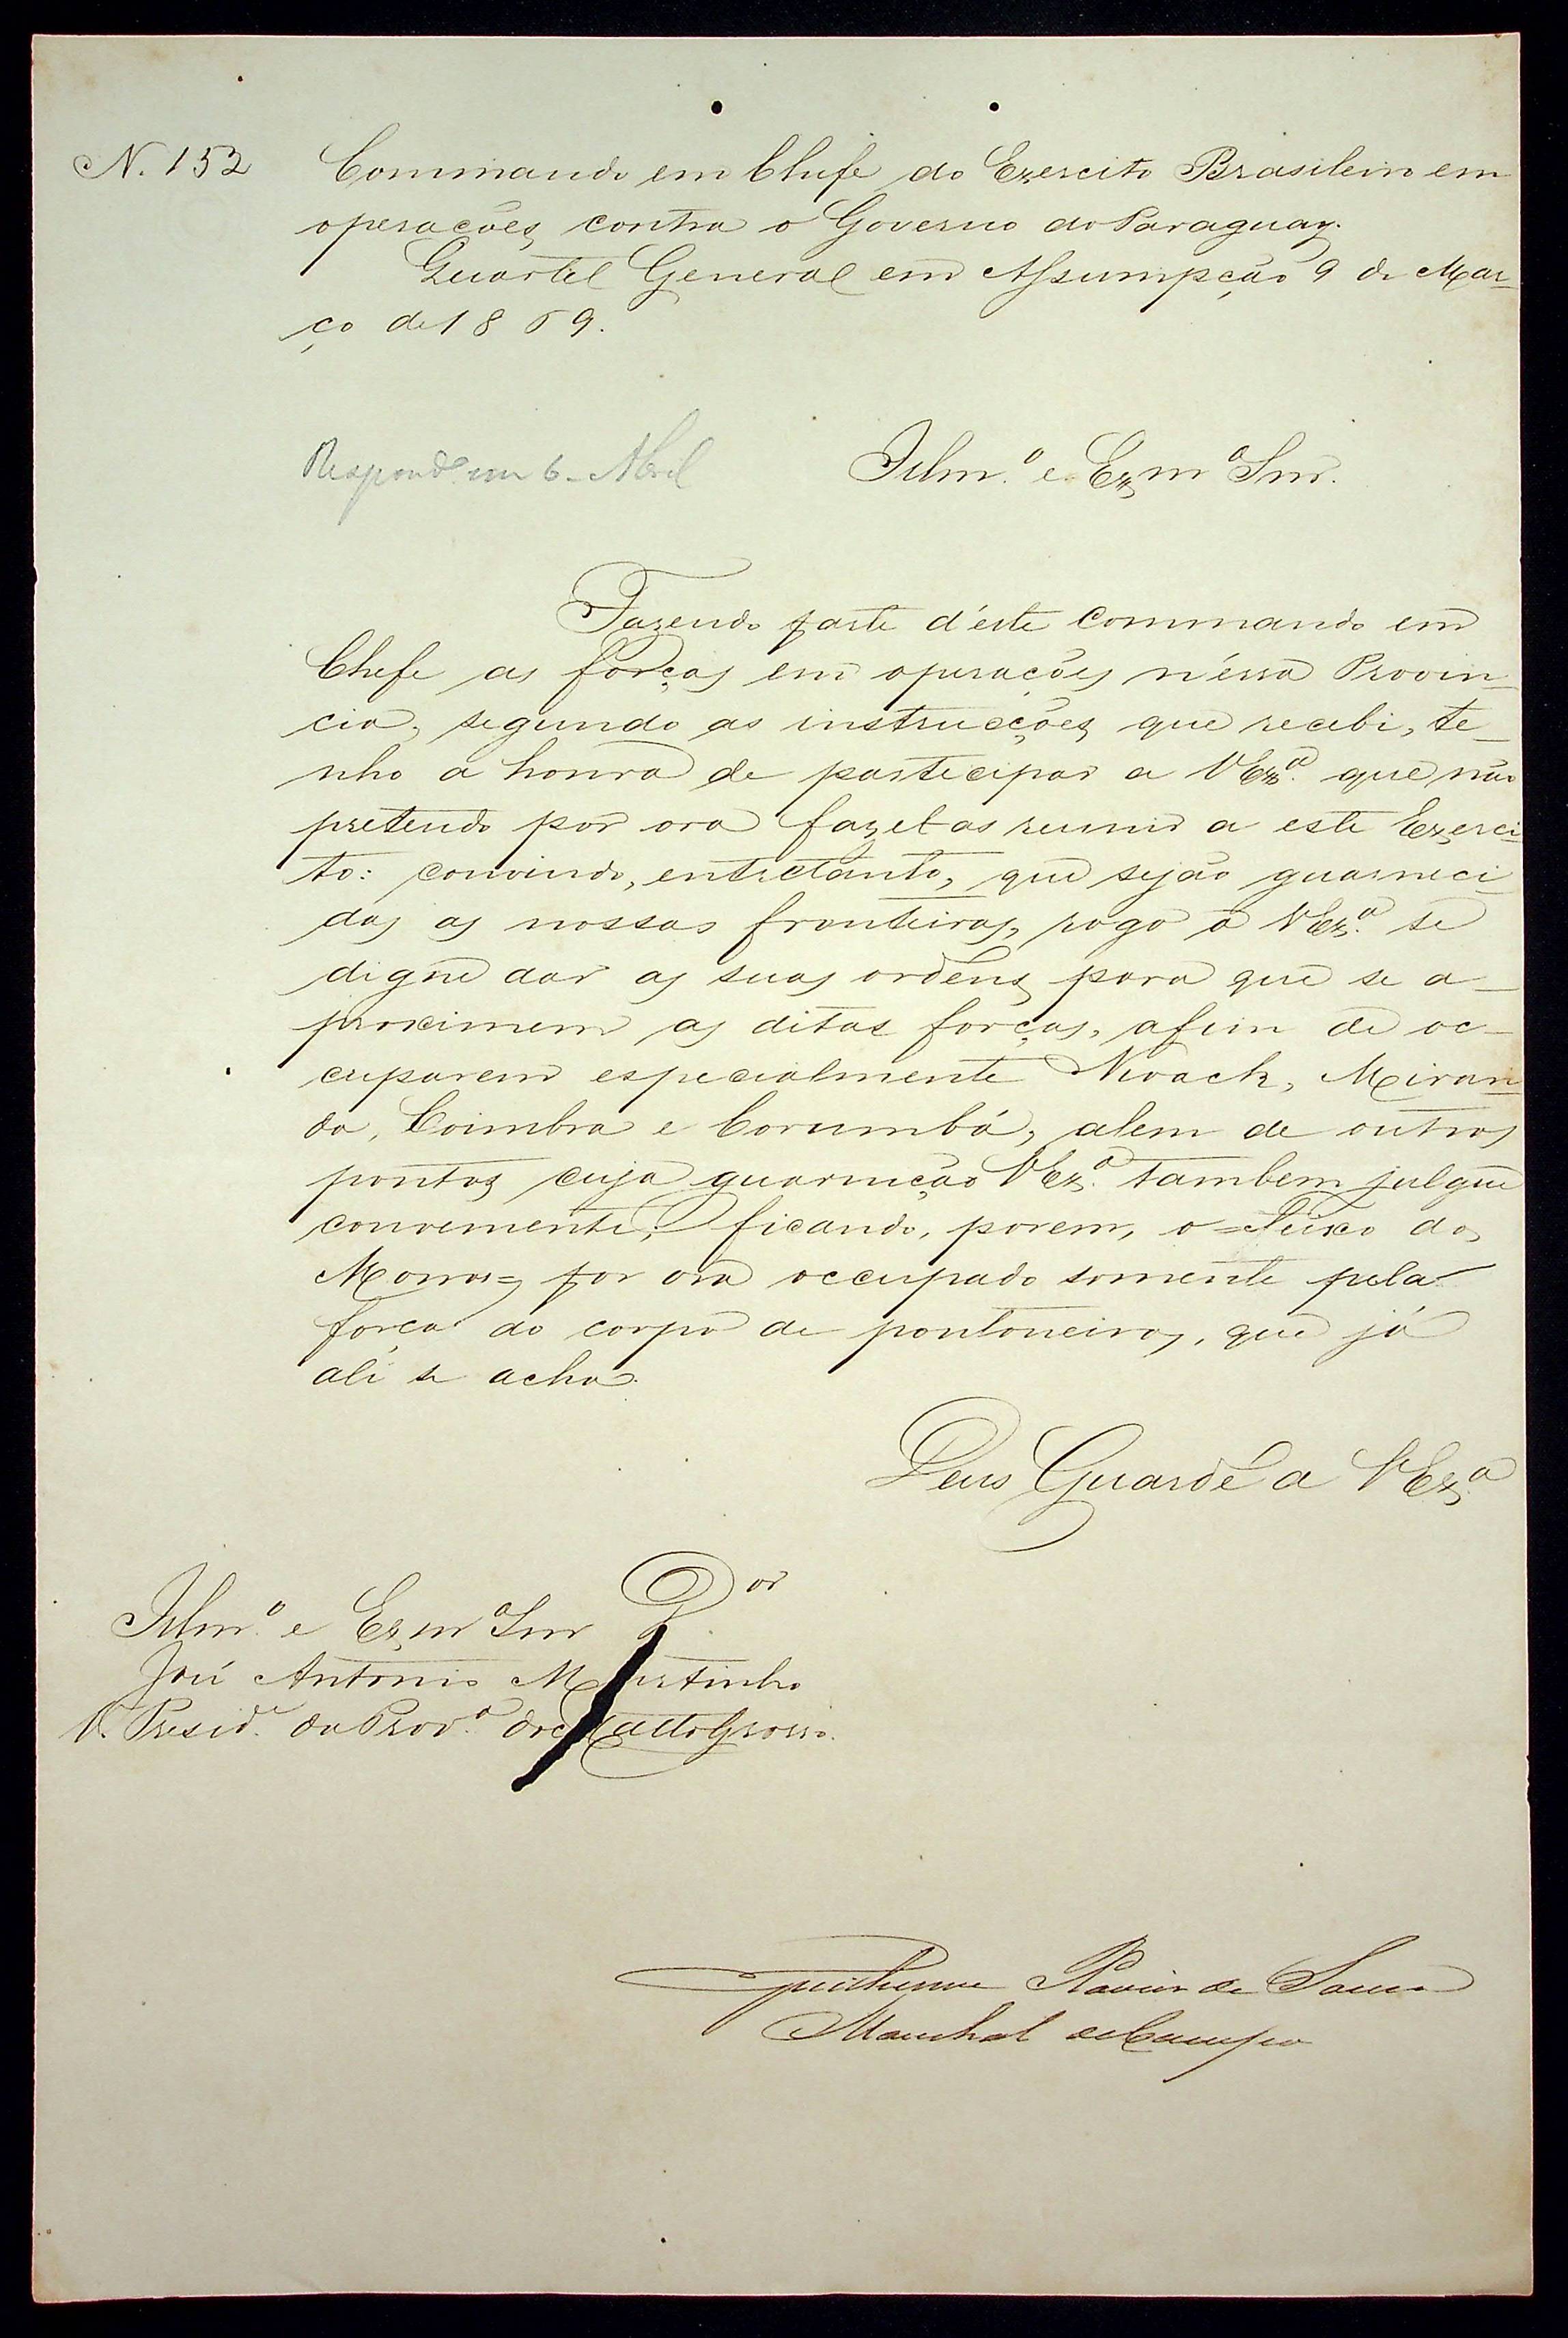 N. 152
Commando em Chefe do Exercito Brasileiro em
operações contra o Governo do Paraguay.
Quartel General em Assumpção 9 de Mar-
ço de 1869.
Respond.º em 6 Abril
Illm.º e Exm.º Snr.
Fazendo parte d'éste Commando em
Chefe as forças em operações n'éssa Provin-
cia, segundo as instrucções que recebi, te-
nho a honra de participar a V Ex.ª que não
pretendo por ora fazel-as reunir a este Exerci-
to: convindo, entretanto, que sejão guarneci-
das as nossas fronteiras, rogo a V Ex.ª se
digne dar as suas ordens para que se a-
proximem as ditas forças, afim de oc-
cuparem especialmente Nioack, Miran-
da, Coimbra e Corumbá, alem de outros
pontos cuja guarnição V Ex.ª tambem julgue
conveniente; ficando, porem, o =Feixo dos
Morros= por ora occupado somente pela
força do corpo de pontoneiros, que já
ali se acha.
Deus Guarde a V Ex.ª
Illm.º e Exm.º Snr D.or
José Antonio Murtinho
V. Presid.e da Prov.ª de Matto Grosso.
Guilherme Xavier de Souza
Marechal de Campo